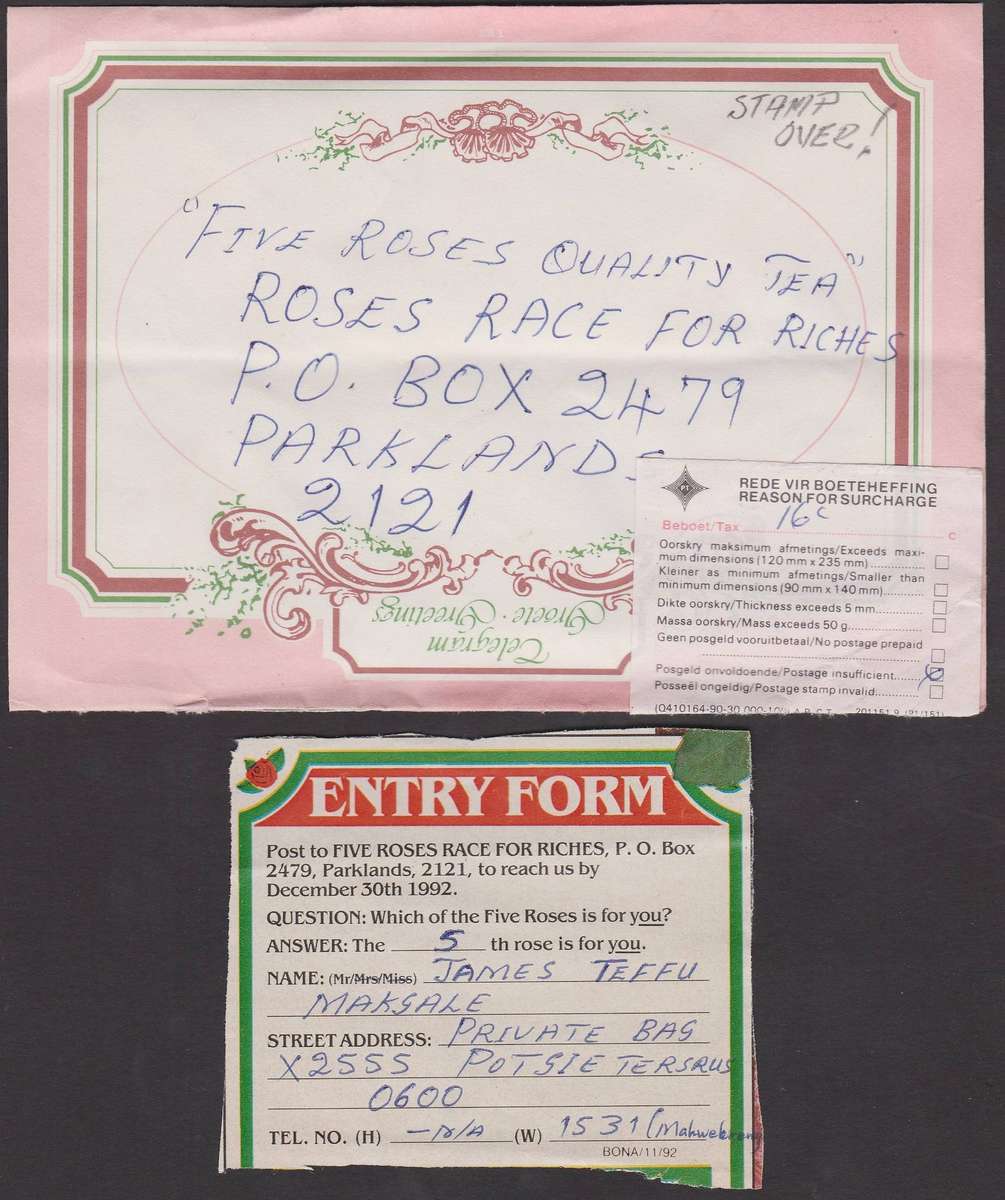 STAMP
OVER!
"FIVE ROSES QUALITY TEA"
ROSES RACE FOR RICHES
P.O. BOX 2479
PARKLANDS
2121
REDE VIR BOETEHEFFING
REASON FOR SURCHARGE
Beboet/Tax 16c c
Oorskry maksimum afmetings/Exceeds maxi-
mum dimensions (120 mm x 235 mm)
Kleiner as minimum afmetings/Smaller than
minimum dimensions (90 mm x 140 mm)
Dikte oorskry/Thickness exceeds 5 mm
Massa oorskry/Mass exceeds 50 g
Geen posgeld vooruitbetaal/No postage prepaid
Posgeld onvoldoende/Postage insufficient
Posseël ongeldig/Postage stamp invalid
Telegram
Groete · Greetings
ENTRY FORM
Post to FIVE ROSES RACE FOR RICHES, P. O. Box
2479, Parklands, 2121, to reach us by
December 30th 1992.
QUESTION: Which of the Five Roses is for you?
ANSWER: The 5 th rose is for you.
NAME: (Mr/Mrs/Miss) JAMES TEFFU
MAKGALE
STREET ADDRESS: PRIVATE BAG
X2555 POTGIETERSRUS
0600
TEL. NO. (H) -N/A (W) 1531
BONA/11/92